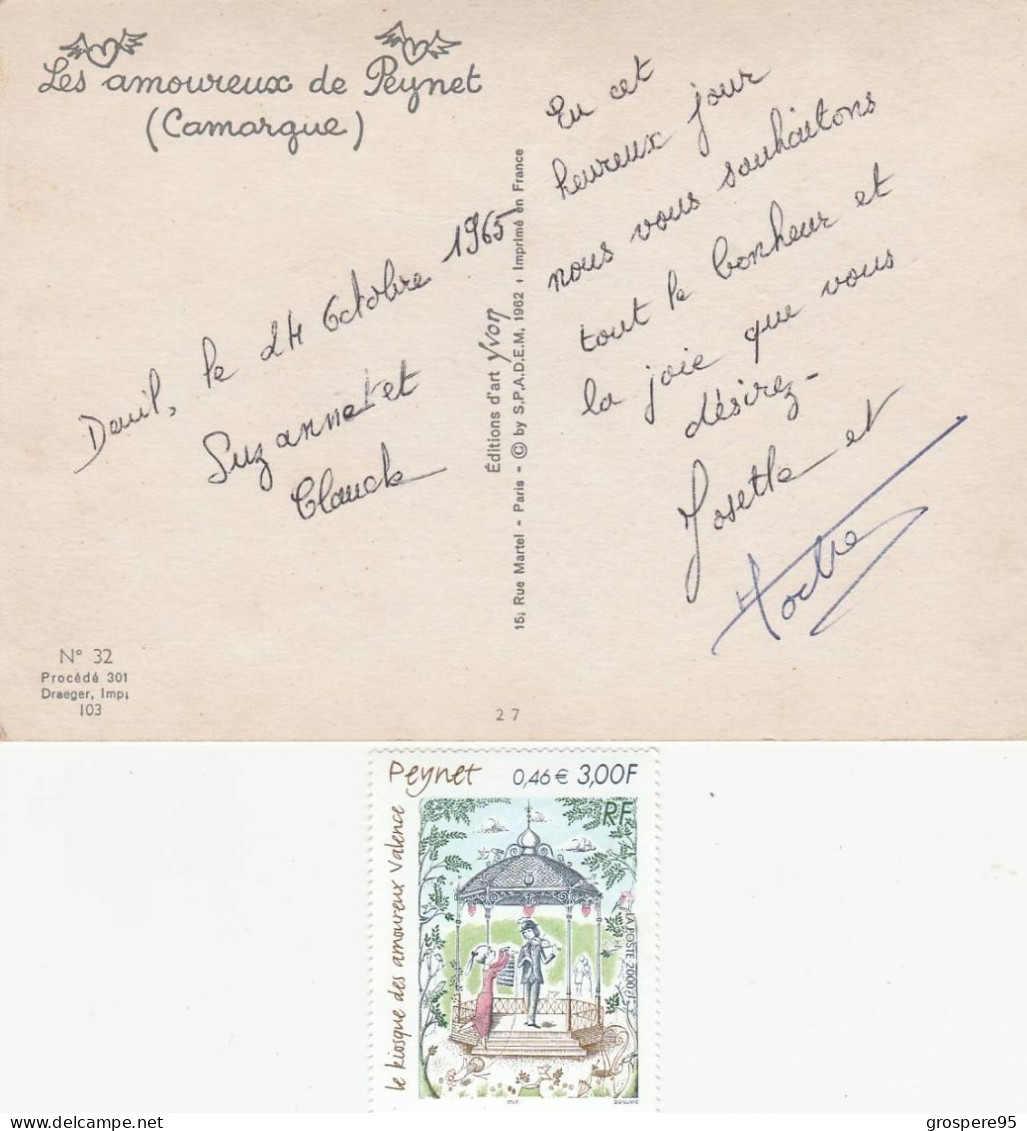 Les amoureux de Peynet
(Camargue)
Deuil, le 24 Octobre 1965
Suzanne et
Claude
N° 32
Procédé 301
Draeger, Imp.
103
Éditions d'art Yvon
15, Rue Martel - Paris - © by S.P.A.D.E.M. 1962 . Imprimé en France
27
En cet
heureux jour
nous vous souhaitons
tout le bonheur et
la joie que vous
désirez -
Josette et
Peynet
0,46 € 3,00F
RF
le kiosque des amoureux Valence
LA POSTE 2000
ITVF
© grospere95